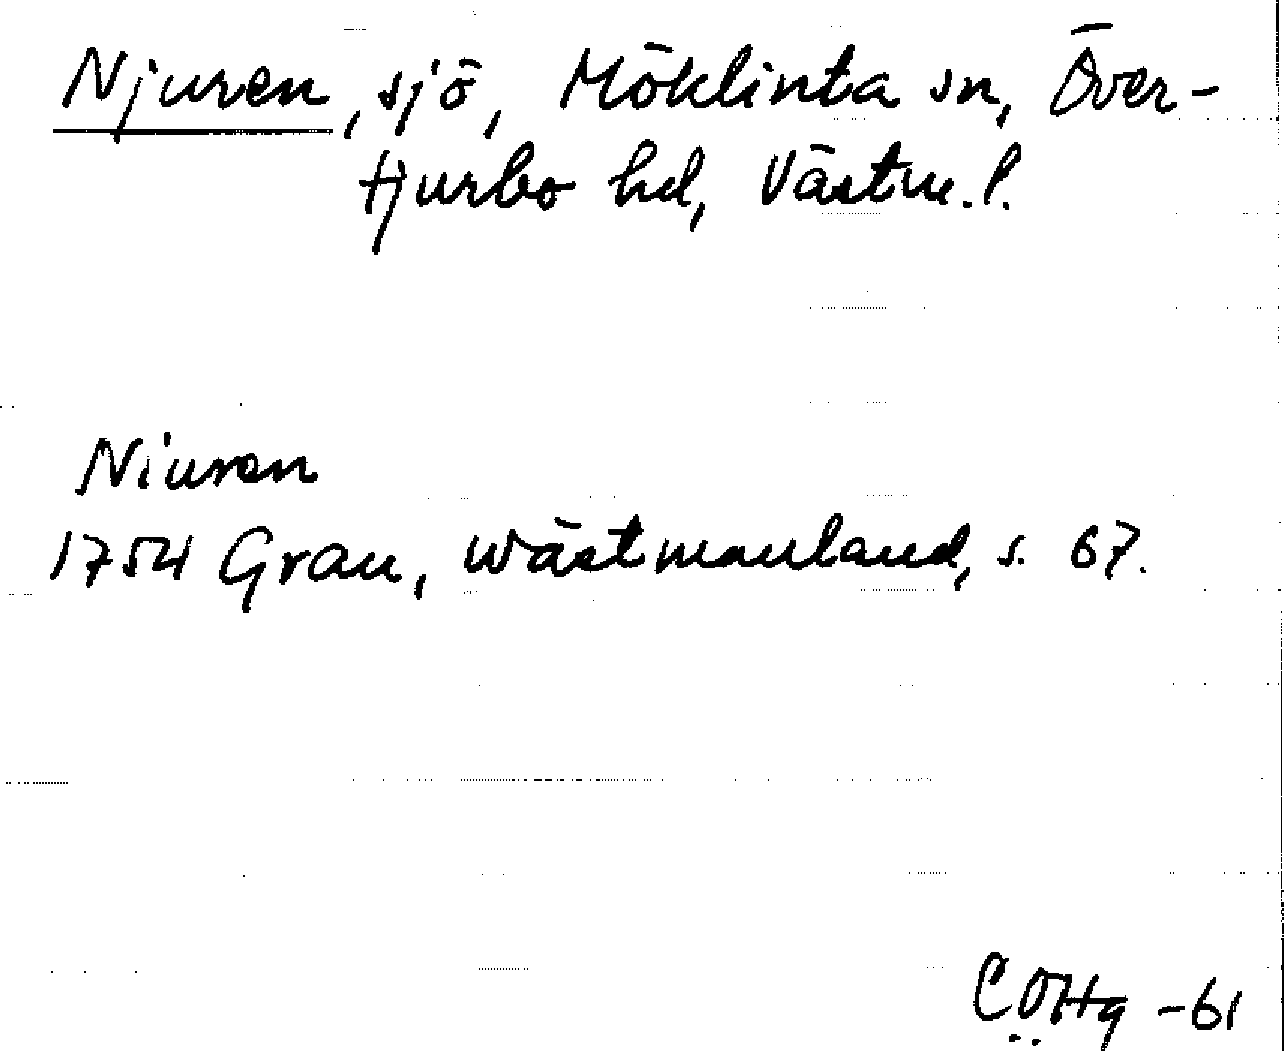 Njuren, sjö, Möklinta sn, Över-
tjurbo hd, Västm.l.
Niuren
1754 Grau, Wästmanland, s. 67.
-61